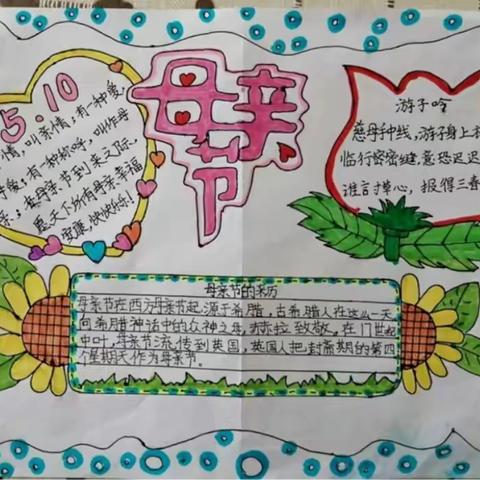 5.10
情,叫亲情;有一种爱,
爱;有一种称呼,叫作母
亲;在母亲节到来之际,
愿天下所有母亲幸福
安康,快快乐乐!
母亲节
游子吟
慈母种线,游子身上衣
临行密密缝,意恐迟迟
谁言寸心,报得三春
母亲节的来历
母亲节在西方母亲节起源于希腊,古希腊人在这么一天
向希腊神话中的众神之母,赫拉致敬,在17世纪
中叶,母亲节流传到英国,英国人把封斋期的第四
个星期天作为母亲节。